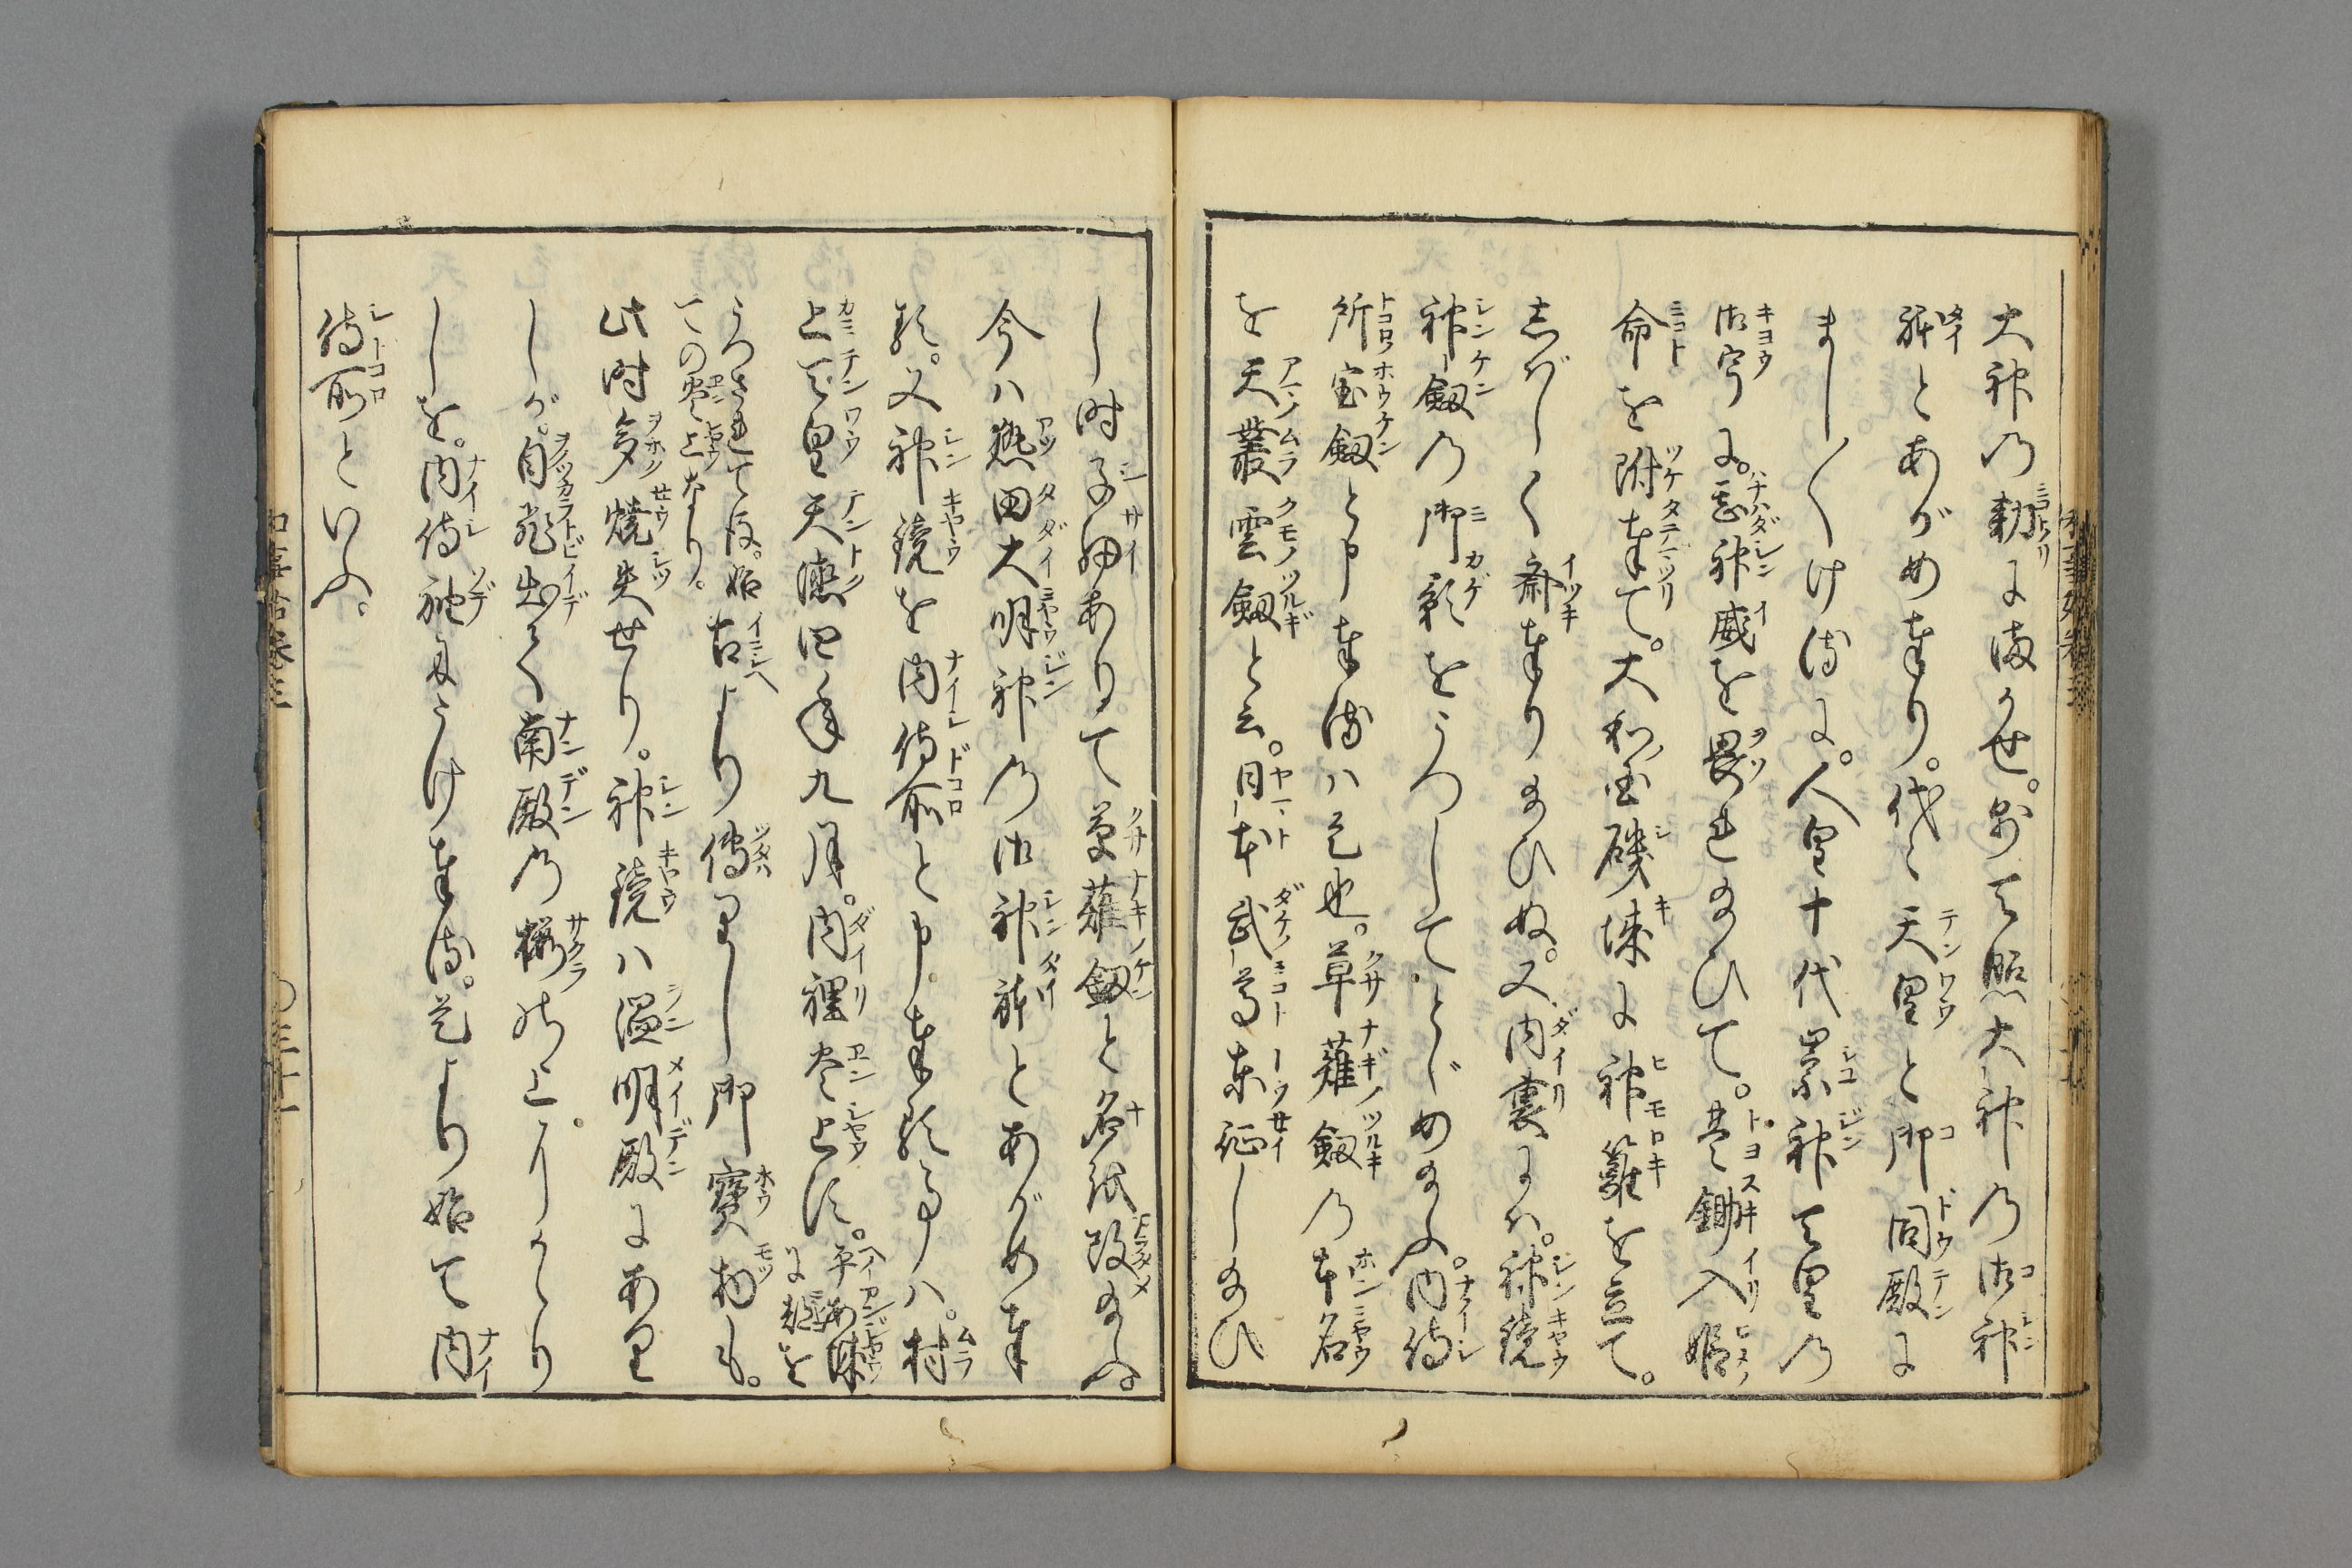 大神の勅にまかせ。則天照大神の御神
躰とあがめ奉り。代〻天皇と御同殿に
まし〳〵ける に。人皇十代崇神天皇の
御宇に。甚神威を畏れ給ひて。豊鋤入姫
命を附奉て。大和国磯城に神籬を立て。
しばしく斎奉り給ひぬ。又内裏には。神鏡
神劔の御影をうつして。とゞめ給ふ。内侍
所宝劔と申奉るハ是也。草薙劔の本名
を天叢雲劔と云。日本武尊東征し給ひ
し時子細ありて草薙劔と名を改給ふ。
今ハ熱田大明神の御神躰とあがめ奉
る。又神鏡を内侍所と申奉る事ハ。村
上天皇天徳四年九月。内裡炎上す。平安城に都を
うつされて後。始ての炎上なり。古より傳りし御寳物も。
此時多焼失せり。神鏡ハ温明殿にあり
しが。自飛出て南殿の桜の上にかゝり
しを。内侍袖にうけ奉る。是より始て内
侍所といふ。